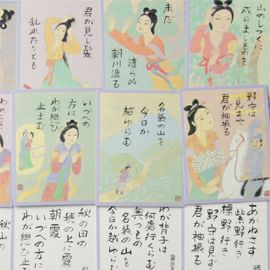 山のしづくに
成らましものを
未だ
渡らぬ
朝川渡る
君が見し髪
乱れたりとも
野守は
見ずや
君が袖振る
名張の山を
今日か
越ゆらむ
いづへの
方に
わが恋ひ
止まむ
あかねさ
紫野行き
標野行き
野守は見
君が袖振
わが背子は
何処行くら
名張の山を
今日か越ゆら
秋の田の
穂の上に霧
朝霞
いづへの方に
わが恋ひ止
秋山